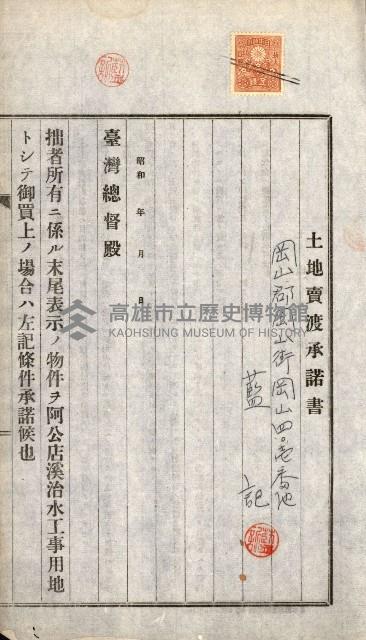 土地賣渡承諾書
岡山郡岡山街岡山四〇壱番地
藍記
昭和　年　月　日
臺灣總督殿
拙者所有ニ係ル末尾表示ノ物件ヲ阿公店溪治水工事用地
トシテ御買上ノ場合ハ左記條件承諾候也
高雄市立歷史博物館
KAOHSIUNG MUSEUM OF HISTORY